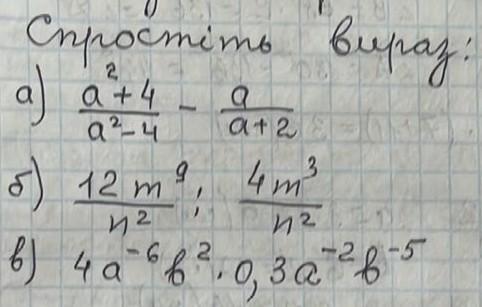 Спростіть вираз:
а) (a²+4)/(a²-4) - a/(a+2)
б) 12m⁹/n² : 4m³/n²
в) 4a⁻⁶b² · 0,3a⁻²b⁻⁵